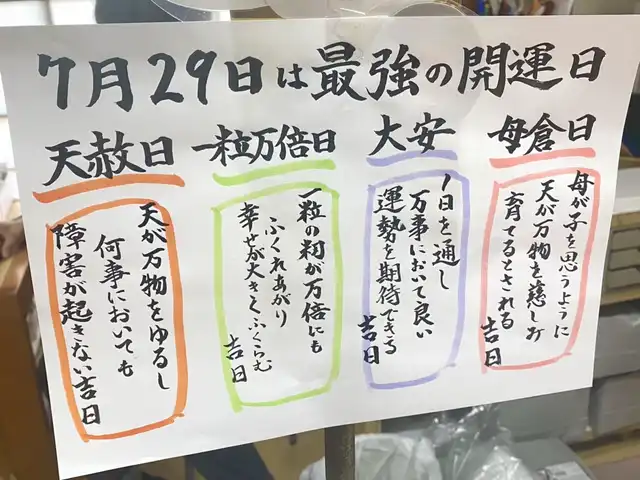 7月29日は最強の開運日
母倉日
母が子を思うように
天が万物を慈しみ
育てるとされる
吉日
大安
1日を通し
万事において良い
運勢を期待できる
吉日
一粒万倍日
一粒の籾が万倍にも
ふくれあがり
幸せが大きくふくらむ
吉日
天赦日
天が万物をゆるし
何事においても
障害が起きない吉日